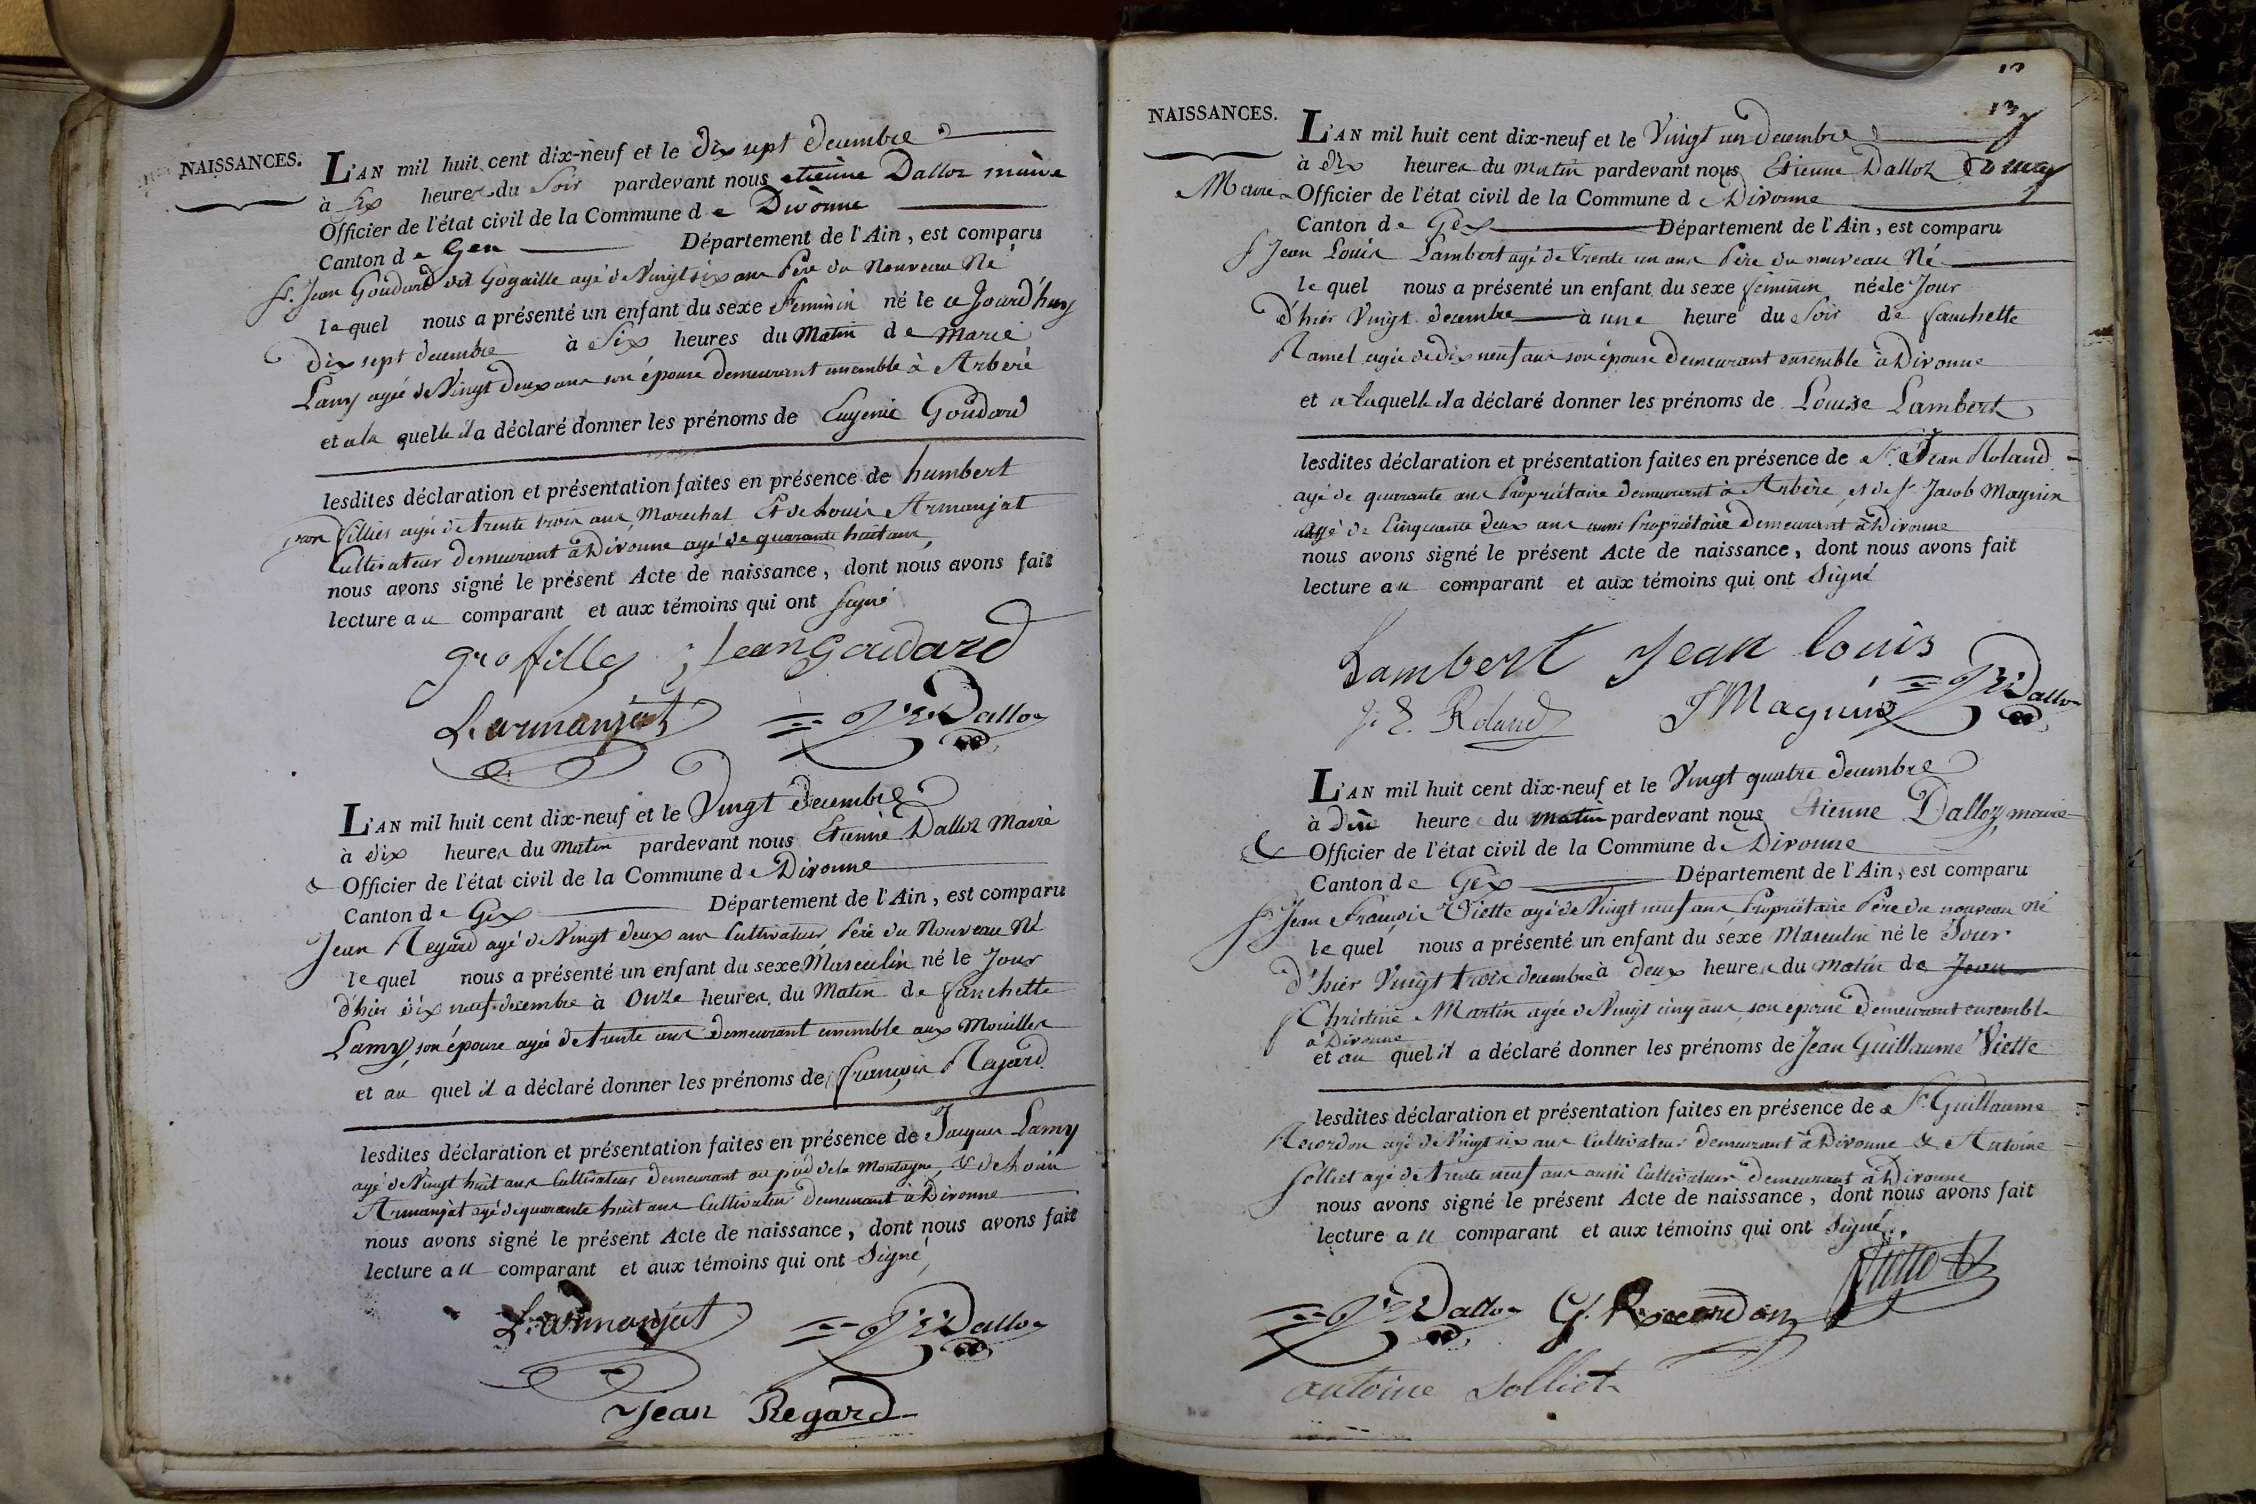 NAISSANCES.
L'AN mil huit cent dix-neuf et le dix sept decembre
à Six heures du Soir pardevant nous etienne Dalloz maire
Officier de l'état civil de la Commune de Divonne
Canton de Gex Département de l'Ain, est comparu
Sr. Jean Goudard dit Gogaille agé de Vingt six ans Père du Nouveau Né
lequel nous a présenté un enfant du sexe Feminin né le ce Jourd'huy
dix sept decembre à Six heures du Matin de Marie
Lamy agée de Vingt Deux ans son épouse demeurant ensemble à Arbere
et à la quelle il a déclaré donner les prénoms de Eugenie Goudard
lesdites déclaration et présentation faites en présence de humbert
fillier agé de trente trois ans Marechal Et de Louis Armanjat
Cultivateur demeurant à Divonne agé de quarante huit ans,
nous avons signé le présent Acte de naissance, dont nous avons fait
lecture au comparant et aux témoins qui ont signé
grofilley Jean Goudard
L. armanjat Dalloz
L'AN mil huit cent dix-neuf et le Vingt decembre
à dix heures du Matin pardevant nous Etienne Dalloz Maire
& Officier de l'état civil de la Commune de Divonne
Canton de Gex Département de l'Ain, est comparu
Jean Regard agé de Vingt deux ans Cultivateur Père du Nouveau Né
lequel nous a présenté un enfant du sexe Masculin né le Jour
d'hier dix neuf decembre à Onze heures du Matin de fanchette
Lamy, son épouse agée de trente ans demeurant ensemble aux Mouilles
et au quel il a déclaré donner les prénoms de françois Regard
lesdites déclaration et présentation faites en présence de Jacques Lamy
agé de Vingt huit ans Cultivateur demeurant au pied de la Montagne, & de Louis
Armanjat agé de quarante huit ans Cultivateur demeurant à Divonne
nous avons signé le présent Acte de naissance, dont nous avons fait
lecture au comparant et aux témoins qui ont Signé
L. armanjat Dalloz
Jean Regard
13
NAISSANCES.
L'AN mil huit cent dix-neuf et le Vingt un decembre
à dix heures du matin pardevant nous Etienne Dalloz
Maire Officier de l'état civil de la Commune de Divonne
Canton de Gex Département de l'Ain, est comparu
Sr Jean Louis Lambert agé de trente un ans Père du nouveau Né
lequel nous a présenté un enfant du sexe feminin né le Jour
d'hier Vingt decembre à une heure du Soir de fanchette
Ramel agée de dix neuf ans son épouse demeurant ensemble à Divonne
et a laquelle il a déclaré donner les prénoms de Louise Lambert
lesdites déclaration et présentation faites en présence de Sr. Jean Roland
agé de quarante ans Propriétaire demeurant à Arbère, et de Sr Jacob Magnin
agé de Cinquante deux ans aussi Propriétaire demeurant à Divonne
nous avons signé le présent Acte de naissance, dont nous avons fait
lecture au comparant et aux témoins qui ont Signé
Lambert Jean Louis
Roland J Magnin Dalloz
L'AN mil huit cent dix-neuf et le Vingt quatre decembre
à dix heure du matin pardevant nous Etienne Dalloz, maire
& Officier de l'état civil de la Commune de Divonne
Canton de Gex Département de l'Ain, est comparu
Sr Jean François Viette agé de Vingt neuf ans Propriétaire Père du nouveau né
lequel nous a présenté un enfant du sexe Masculin né le Jour
d'hier Vingt trois decembre à deux heures du Matin de Jean
Christine Martin agée de Vingt cinq ans son épouse demeurant ensemble
à Divonne
et au quel il a déclaré donner les prénoms de Jean Guillaume Viette
lesdites déclaration et présentation faites en présence de Sr. Guillaume
Recordon agé de Vingt six ans Cultivateur demeurant à Divonne & Antoine
Solliet agé de trente neuf ans aussi Cultivateur demeurant à Divonne
nous avons signé le présent Acte de naissance, dont nous avons fait
lecture au comparant et aux témoins qui ont Signé.
Viette
Dalloz G. Recordon
antoine Solliet